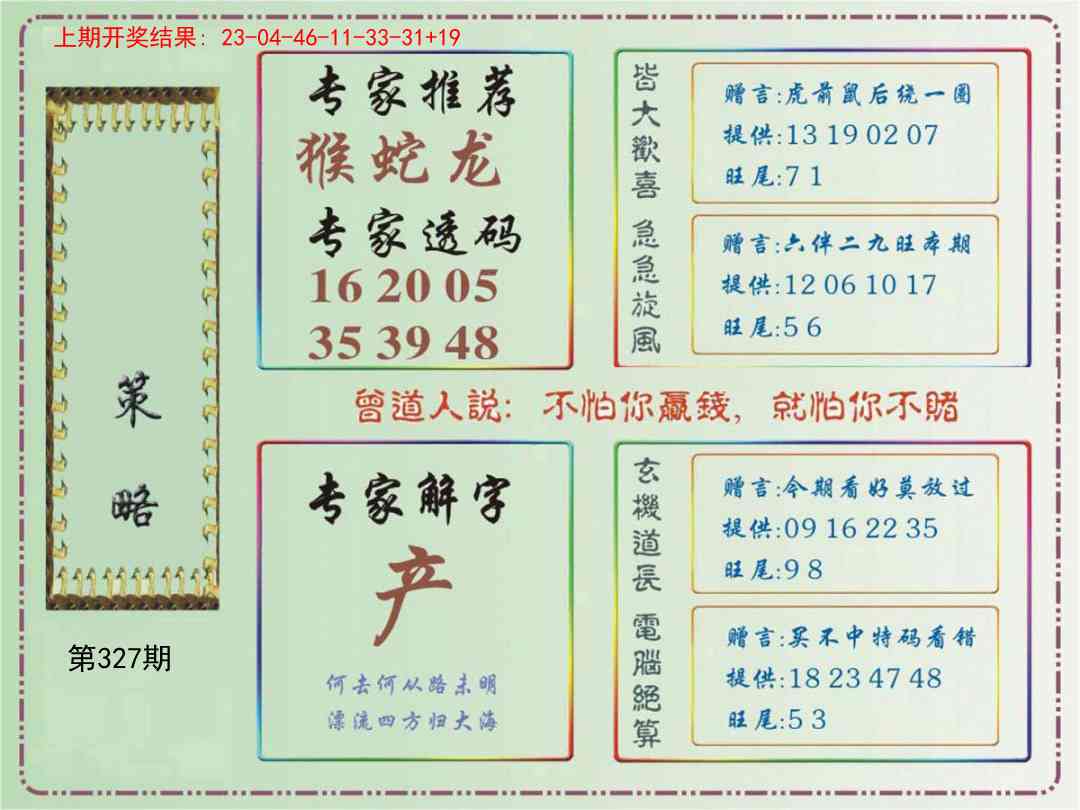 上期开奖结果: 23-04-46-11-33-31+19
策略
第327期
专家推荐
猴蛇龙
专家透码
16 20 05
35 39 48
皆大歡喜
赠言:虎前鼠后绕一圈
提供:13 19 02 07
旺尾:7 1
急急旋風
赠言:六伴二九旺本期
提供:12 06 10 17
旺尾:5 6
曾道人説: 不怕你贏錢, 就怕你不賭
专家解字
产
何去何从路未明
漂流四方归大海
玄機道長
赠言:今期看好莫放过
提供:09 16 22 35
旺尾:9 8
電腦絕算
赠言:买不中特码看错
提供:18 23 47 48
旺尾:5 3